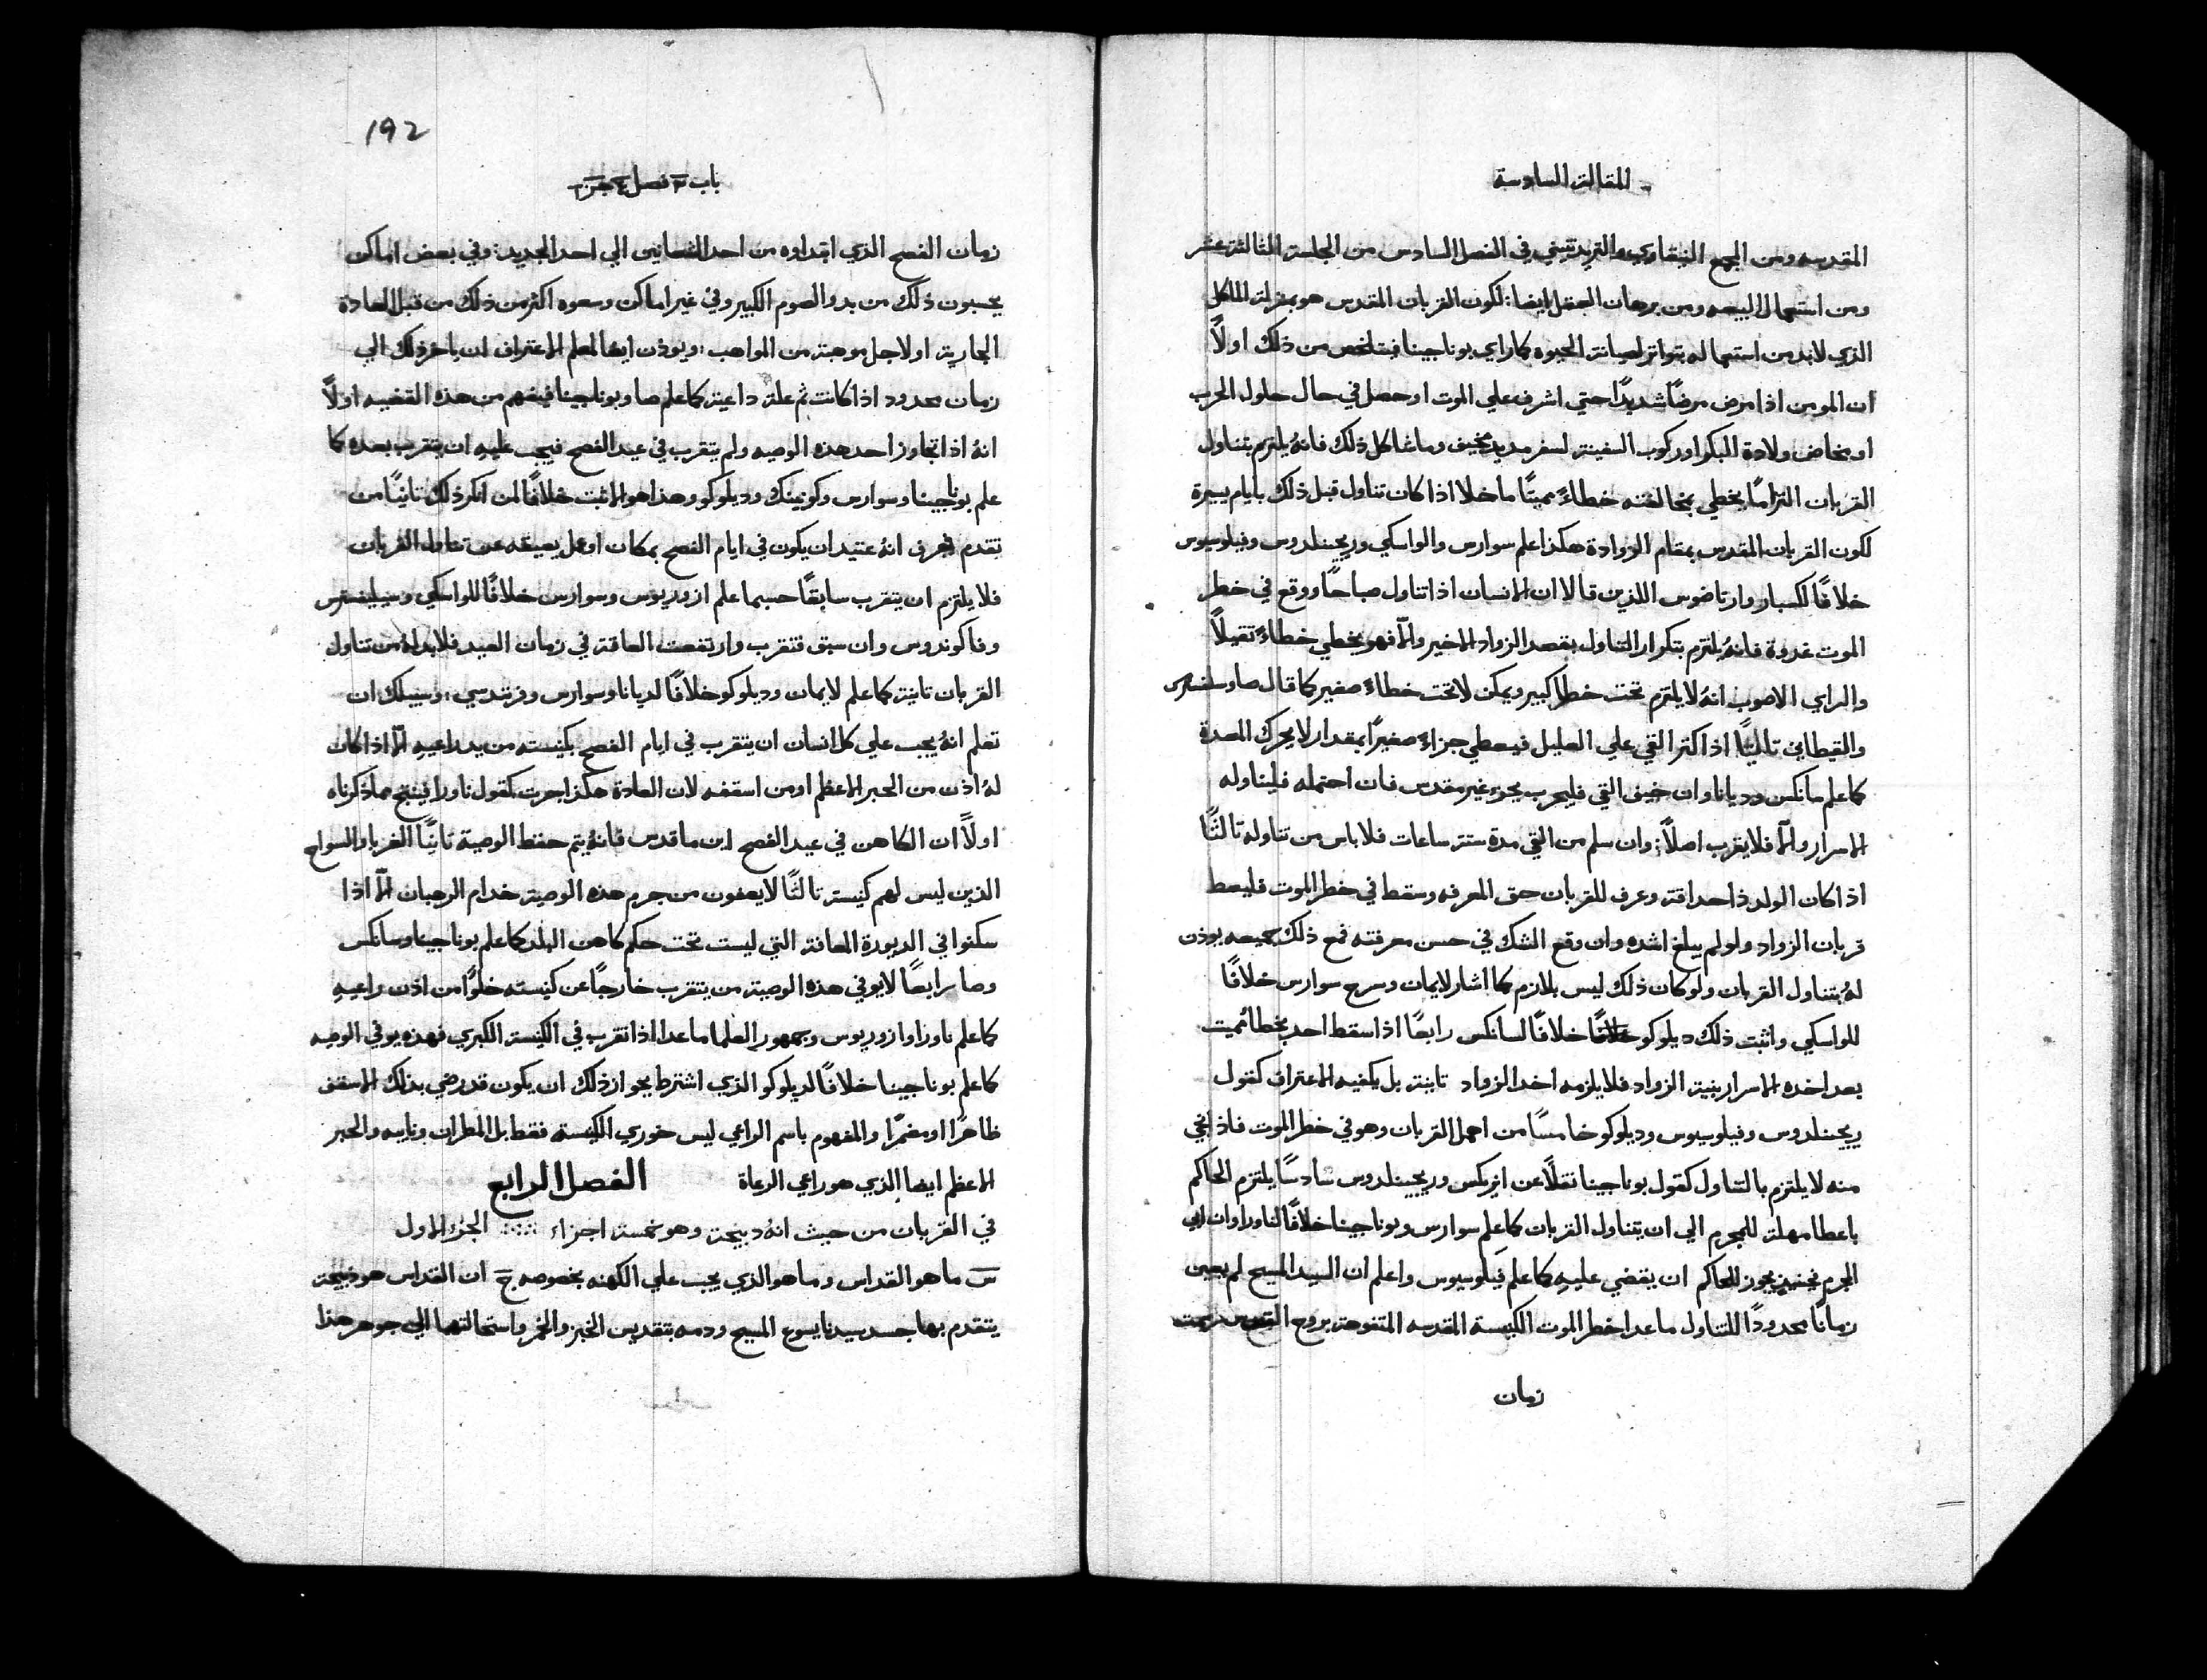 المقالة السادسة
المقدسه ومن المجمع النيقاوي والتريدنتيني في الفصل السادس من الجلسة الثالثة عشر
ومن استعمال البيعه ومن برهان العقل ايضا: لكون القربان المقدس هو بمنزلة الماكل
الذي لابد من استعماله بتواتر لصيانة الحيوه كما راي بوناجينا فيتلخص من ذلك اولاً
ان المومن اذا مرض مرضًا شديدًا حتي اشرف علي الموت او حصل في حال حلول الحرب
او مخاض ولادة البكر او ركوب السفينة لسفر مديد مخيف وما شاكل ذلك فانهُ يلتزم بتناول
القربان التزامًا يخطي بمخالفته خطاءً مميتًا ما خلا اذا كان تناول قبل ذلك بايام يسيرة
لكون القربان المقدس بمقام الزوادة هكذا علم سوارس والواسكي وريجينلدوس وفيلوسيوس
خلافًا لكسبار وارتاضوس اللذين قالا ان الانسان اذا تناول صباحًا ووقع في خطر
الموت غدوة فانهُ يلتزم بتكرار التناول بقصد الزواد الاخير والّا فهو يخطي خطاءً تقيلاً
والراي الاصوب انهُ لا يلتزم تحت خطاء كبير ويمكن لا تحت خطاءً صغير كما قال صا وسلفسترس
والقيطاني تانيًا اذا كتر القي علي العليل فيعطي جزاءً صغيرًا بمقدار لا يحرك المعدة
كما علم سانكس وديانا وان خيف القي فليجرب بجزء غير مقدس فان احتمله فليناوله
الاسرار والّا فلا يقرب اصلاً: وان سلم من القي مدة ستة ساعات فلا باس من تناوله تالتًا
اذا كان الولد ذا حداقة وعرف للقربان حق المعرفه وسقط في خطر الموت فليعط
قربان الزواد ولو لم يبلغ اشده وان وقع الشك في حسن معرفته فمع ذلك جميعه يوذن
لهُ بتناول القربان ولو كان ذلك ليس بلازم كما اشار لايمان وسرج سوارس خلافًا
للواسكي واثبت ذلك ديلوكو خلافًا خلافًا لسانكس رابعًا اذا سقط احد بخطا مميت
بعد اخذه الاسرار بنية الزواد فلا يلزمه اخد الزواد تانية بل يكفيه الاعتراف كقول
ريجينلدوس وفيلوسيوس وديلوكو خامسًا من اهمل القربان وهو في خطر الموت فاذا نجي
منه لا يلتزم بالتناول كقول بوناجينا نقلًا عن انريكس وريجينلدوس سادسًا يلتزم الحاكم
باعطا مهلة للمجرم الي ان يتناول القربان كما علم سوارس وبوناجينا خلافًا لناورا وان ابي
المجرم فحينيذ يجوز للحاكم ان يقضي عليهِ كما علم فيلوسيوس واعلم ان السيد المسيح لم يعين
زمانًا محدودًا للتناول ما عدا خطر الموت الكنيسة المقدسه المنفوحة بروح القدس
زمان
192
باب ٣ فصل ٤ جز ١
زمان الفصح الذي ابتداوه من احد الشعانين الي احد الجديد: وفي بعض اماكن
يحسبون ذلك من بدو الصوم الكبير وفي غير اماكن وسعوه اكثر من ذلك من قبل العادة
الجارية او لاجل موهبة من المواهب: ويوذن ايضا لمعلم الاعتراف ان ياخر ذلك الي
زمان محدود اذا كانت ثم علة داعية كما علم صا وبوناجينا فيفهم من هذه القضيه اولًا
انهُ اذا تجاوز احد هذه الوصيه ولم يتقرب في عيد الفصح فيجب عليهِ ان يتقرب بعده كما
علم بوناجينا وسوارس وكونينك وديلوكو وهذا هو الاثبت خلافًا لمن انكر ذلك تانيًا من
تقدم فعرف انهُ عتيد ان يكون في ايام الفصح بمكان او عمل يعيقه عن تناول القربان
فلا يلتزم ان يتقرب سابقًا حسبما علم ازوريوس وسوارس خلافًا للواسكي وسيليفسترس
وفاكوندوس وان سبق فتقرب وارتفعت العاقة في زمان العيد فلا بد لهُ من تناول
القربان تانية كما علم لايمان وديلوكو خلافًا لديانا وسوارس وفرندسي: وسبيلك ان
تعلم انهُ يجب علي كل انسان ان يتقرب في ايام الفصح بكنيسته من يد راعيهِ الّا اذا كان
لهُ اذن من الحبر الاعظم او من اسقفه لان العادة هكذا جرت كقول ناورا فينتج مما ذكرناه
اولًا ان الكاهن في عيد الفصح اين ما قدس فانهُ يتم حفظ الوصية تانيًا الغربا والسواح
الذين ليس لهم كنيسة تالتًا لا يعفون من جرم هذه الوصية خدام الرهبان الّا اذا
سكنوا في الديورة المعافة التي ليست تحت حكم كاهن البلد كما علم بوناجينا وسانكس
وصا رابعًا لا يوفي هذه الوصية من يتقرب خارجًا عن كنيسته خلوًا من اذن راعيهِ
كما علم ناورا وازوريوس وجمهور العلما ما عدا اذا تقرب في الكنيسة الكبري فهذه يوفي الوصيه
كما علم بوناجينا خلافًا لديلوكو الذي اشترط بجواز ذلك ان يكون قد رضي بذلك الاسقف
ظاهرًا او مضمرًا والمفهوم باسم الراعي ليس خوري الكنيسة فقط بل المطران ونايبه والحبر
الاعظم ايضا الذي هو راعي الرعاة الفصل الرابع
في القربان من حيث انهُ دبيحة وهو خمسة اجزاء الجزء الاول
س ما هو القداس وما هو الذي يجب علي الكهنه بخصوصه ج ان القداس هو ذبيحة
يتقدم بها جسد سيدنا يسوع المسيح ودمه بتقديس الخبز والخمر واستحالتهما الي جوهر هذا